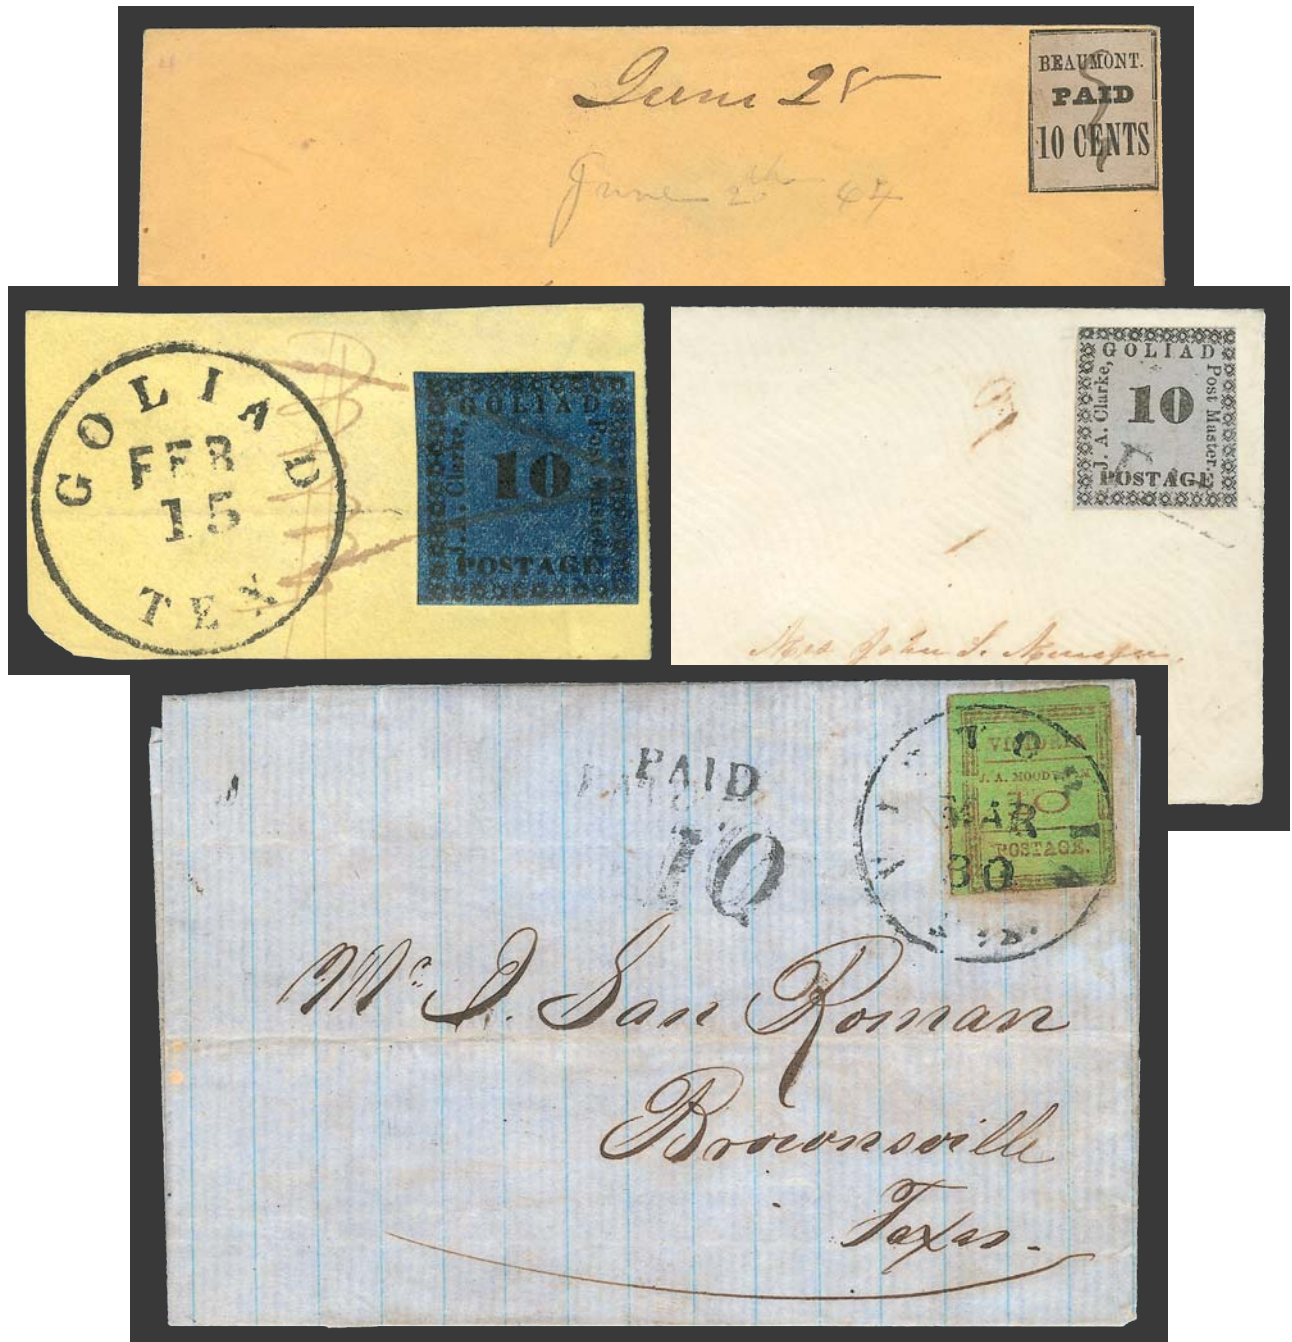 June 28
June 2 th 64
BEAUMONT.
PAID
10 CENTS
GOLIAD
FEB
15
TEX
GOLIAD
J. A. Clarke,
10
Post Master.
POSTAGE
GOLIAD
J. A. Clarke,
10
Post Master.
POSTAGE
Mrs John S.
PAID
10
VICTORIA
MAR
30
VICTORIA
J. A. MOODY
10
POSTAGE.
Mr. J. San Roman
Brownsville
Texas.